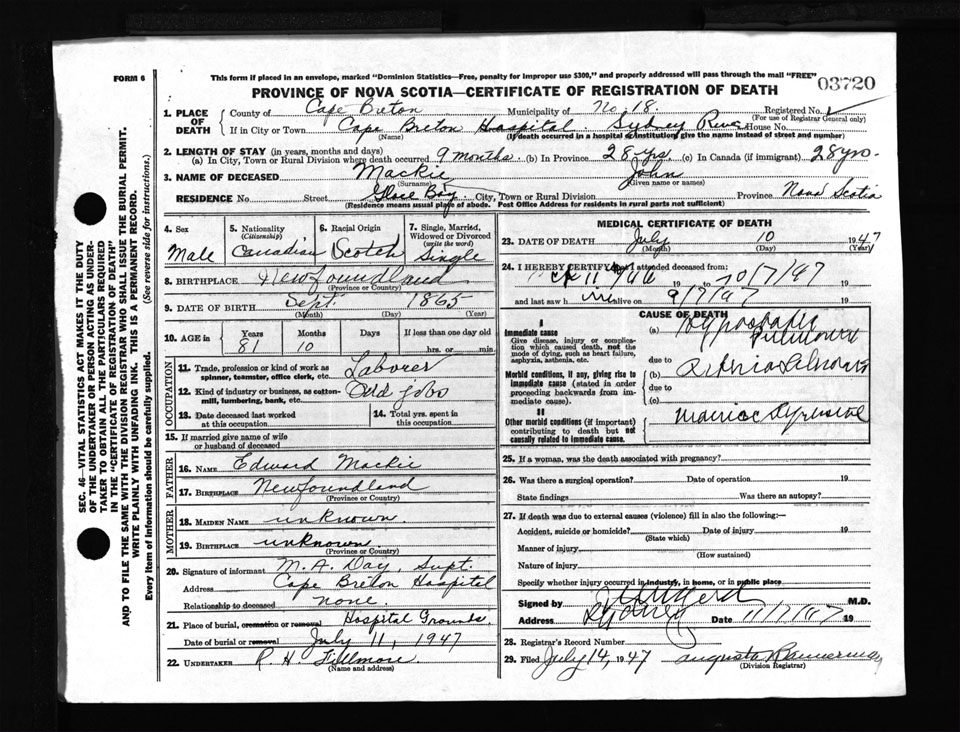 FORM 6
This form if placed in an envelope, marked "Dominion Statistics—Free, penalty for improper use $300," and properly addressed will pass through the mail "FREE"
03720
PROVINCE OF NOVA SCOTIA—CERTIFICATE OF REGISTRATION OF DEATH
1. PLACE OF DEATH
County of Cape Breton Municipality of No. 18. Registered No.
(For use of Registrar General only)
If in City or Town Cape Breton Hospital Sydney River House No.
(If death occurred in a hospital or institution give the name instead of street and number)
2. LENGTH OF STAY (in years, months and days)
(a) In City, Town or Rural Division where death occurred 9 months. (b) In Province 28 yrs. (c) In Canada (if immigrant) 28 yrs.
3. NAME OF DECEASED Mackie John
(Surname) (Given name or names)
RESIDENCE No. Street Glace Bay City, Town or Rural Division Province Nova Scotia
(Residence means usual place of abode. Post Office Address for residents in rural parts not sufficient)
4. Sex Male
5. Nationality (Citizenship) Canadian
6. Racial Origin Scotch
7. Single, Married, Widowed or Divorced (write the word) Single
8. BIRTHPLACE Newfoundland
(Province or Country)
9. DATE OF BIRTH Sept. 1865
(Month) (Day) (Year)
10. AGE in Years Months Days If less than one day old
81 10 hrs. or min.
OCCUPATION
11. Trade, profession or kind of work as spinner, teamster, office clerk, etc. Laborer
12. Kind of industry or business, as cotton-mill, lumbering, bank, etc. Odd jobs
13. Date deceased last worked at this occupation
14. Total yrs. spent in this occupation
15. If married give name of wife or husband of deceased
FATHER
16. NAME Edward Mackie
17. BIRTHPLACE Newfoundland
(Province or Country)
MOTHER
18. MAIDEN NAME unknown.
19. BIRTHPLACE unknown.
(Province or Country)
20. Signature of informant M. A. Day, Supt.
Address Cape Breton Hospital
Relationship to deceased none.
21. Place of burial, cremation or removal Hospital Grounds.
Date of burial or removal July 11, 1947
22. UNDERTAKER P. H. Fillmore
(Name and address)
MEDICAL CERTIFICATE OF DEATH
23. DATE OF DEATH July 10 1947
(Month) (Day) (Year)
24. I HEREBY CERTIFY that I attended deceased from:
19 to 10/7/47 19
and last saw him alive on 9/7/47 19
CAUSE OF DEATH
I
Immediate cause
Give disease, injury or complication which caused death, not the mode of dying, such as heart failure, asphyxia, asthenia, etc.
(a) Hypostatic
due to
Morbid conditions, if any, giving rise to immediate cause (stated in order proceeding backwards from immediate cause).
(b)
due to
(c)
II
Other morbid conditions (if important) contributing to death but not causally related to immediate cause.
25. If a woman, was the death associated with pregnancy?
26. Was there a surgical operation? Date of operation 19
State findings Was there an autopsy?
27. If death was due to external causes (violence) fill in also the following:—
Accident, suicide or homicide? Date of injury 19
(State which)
Manner of injury
(How sustained)
Nature of injury
Specify whether injury occurred in industry, in home, or in public place
Signed by M.D.
Address Sydney Date 11/7/47 19
28. Registrar's Record Number
29. Filed July 14, 1947 Augusta Bannerman
(Division Registrar)
SEC. 46—VITAL STATISTICS ACT MAKES IT THE DUTY
OF THE UNDERTAKER OR PERSON ACTING AS UNDER-
TAKER TO OBTAIN ALL THE PARTICULARS REQUIRED
IN THE "CERTIFICATE OF REGISTRATION OF DEATH"
AND TO FILE THE SAME WITH THE DIVISION REGISTRAR WHO SHALL ISSUE THE BURIAL PERMIT.
WRITE PLAINLY WITH UNFADING INK. THIS IS A PERMANENT RECORD.
Every item of information should be carefully supplied. (See reverse side for instructions.)